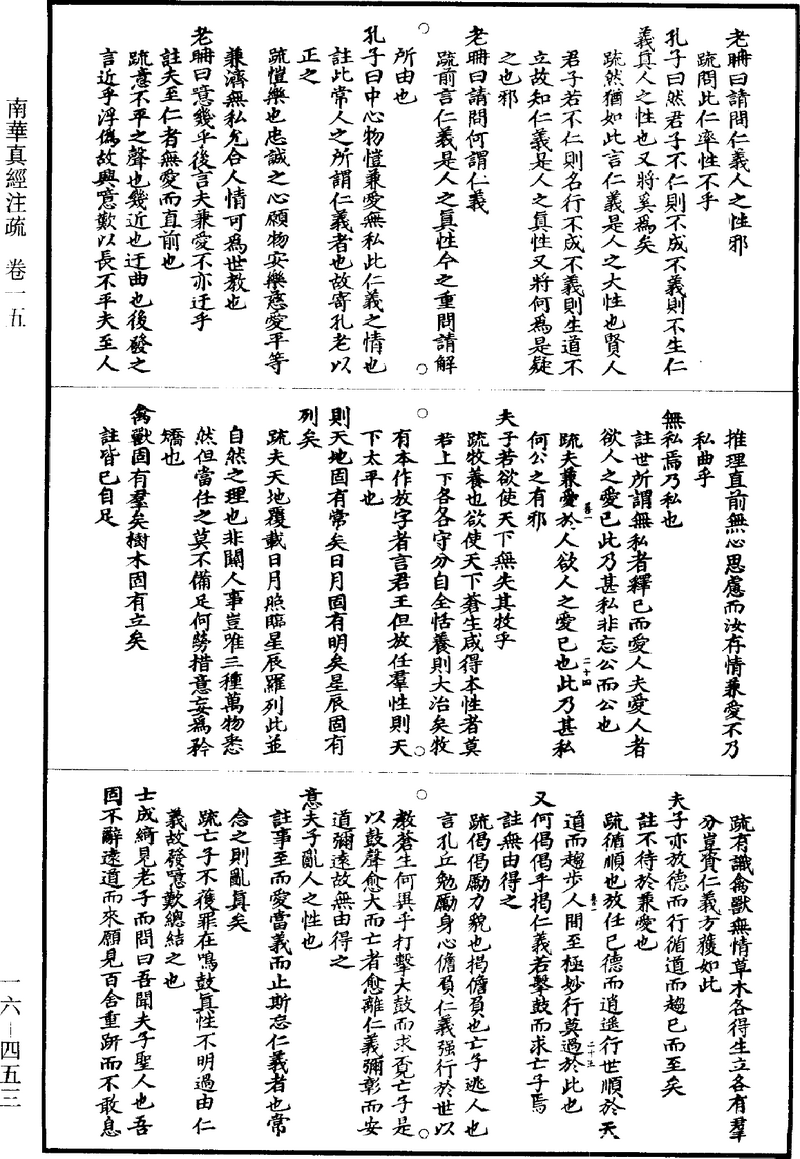 南華真經注疏　卷一五
老聃曰請問仁義人之性邪
疏問此仁率性不乎
孔子曰然君子不仁則不成不義則不生仁
義真人之性也又將奚為矣
疏然猶如此言仁義是人之大性也賢人
君子若不仁則名行不成不義則生道不
立故知仁義是人之真性又將何為是疑
之也邪
老聃曰請問何謂仁義
疏前言仁義是人之真性今之重問請解
所由也
孔子曰中心物愷兼愛無私此仁義之情也
註此常人之所謂仁義者也故寄孔老以
正之
疏愷樂也忠誠之心願物安樂慈愛平等
兼濟無私允合人情可為世教也
老聃曰噫幾乎後言夫兼愛不亦迂乎
註夫至仁者無愛而直前也
疏意不平之聲也幾近也迂曲也後發之
言近乎浮偽故興噫歎以長不平夫至人
推理直前無心思慮而汝存情兼愛不乃
私曲乎
無私焉乃私也
註世所謂無私者釋己而愛人夫愛人者
欲人之愛己此乃甚私非忘公而公也
疏夫兼愛於人欲人之愛己也此乃甚私
何公之有邪
夫子若欲使天下無失其牧乎
疏牧養也欲使天下蒼生咸得本性者莫
若上下各各守分自全恬養則大治矣牧
有本作放字者言君王但放任羣性則天
下太平也
則天地固有常矣日月固有明矣星辰固有
列矣
疏夫天地覆載日月照臨星辰羅列此並
自然之理也非關人事豈唯三種萬物悉
然但當任之莫不備足何勞措意妄為矜
矯也
禽獸固有羣矣樹木固有立矣
註皆已自足
疏有識禽獸無情草木各得生立各有羣
分豈資仁義方獲如此
夫子亦放德而行循道而趨已而至矣
註不待於兼愛也
疏循順也放任已德而逍遙行世順於天
道而趨步人間至極妙行莫過於此也
又何偈偈乎揭仁義若擊鼓而求亡子焉
註無由得之
疏偈偈勵力貌也揭擔負也亡子逃人也
言孔丘勉勵身心儋負仁義强行於世以
教蒼生何異乎打擊大鼓而求覓亡子是
以鼓聲愈大而亡者愈離仁義彌彰而去
道彌遠故無由得之
意夫子亂人之性也
註事至而愛當義而止斯忘仁義者也常
念之則亂真矣
疏亡子不獲罪在鳴鼓真性不明過由仁
義故發噫歎總結之也
士成綺見老子而問曰吾聞夫子聖人也吾
固不辭遠道而來願見百舍重趼而不敢息
一六－四五三